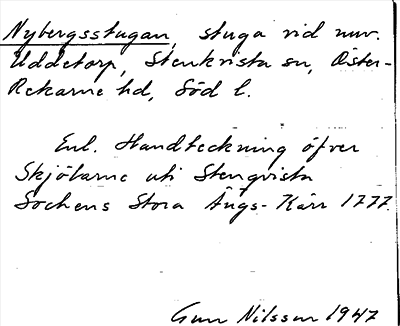 Nybergsstugan, stuga vid nuv.
Uddetorp, Stenkvista sn, Öster-
Rekarne hd, Söd l.
Enl. Handteckning öfver
Skjölarne uti Stenqvista
Sochens Stora Ängs-Kärr 1777.
Gun Nilsson 1947